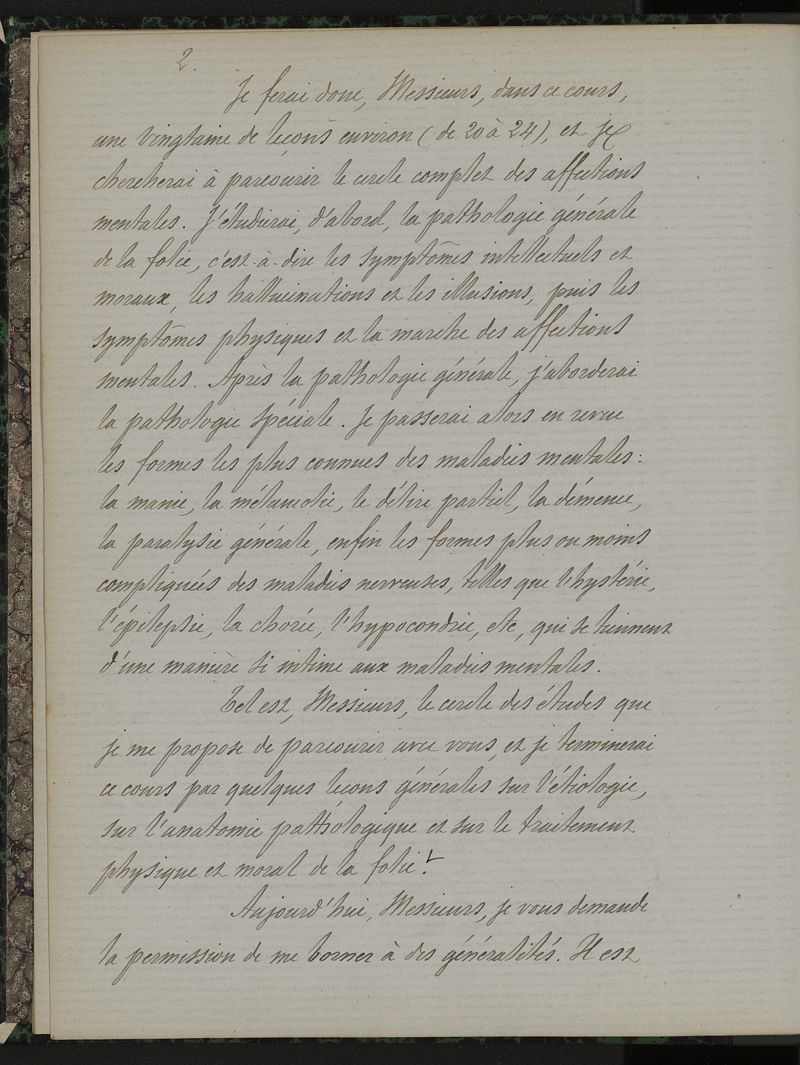 2.
Je ferai donc, Messieurs, dans ce cours,
une vingtaine de leçons environ (de 20 à 24), et je
chercherai à parcourir le cercle complet des affections
mentales. J'étudierai, d'abord, la pathologie générale
de la folie, c'est-à-dire les symptômes intellectuels et
moraux, les hallucinations et les illusions, puis les
symptômes physiques et la marche des affections
mentales. Après la pathologie générale, j'aborderai
la pathologie spéciale. Je passerai alors en revue
les formes les plus connues des maladies mentales:
la manie, la mélancolie, le délire partiel, la démence,
la paralysie générale, enfin les formes plus ou moins
compliquées des maladies nerveuses, telles que l'hystérie,
l'épilepsie, la chorée, l'hypocondrie, etc, qui se tiennent
d'une manière si intime aux maladies mentales.
Tel est, Messieurs, le cercle des études que
je me propose de parcourir avec vous, et je terminerai
ce cours par quelques leçons générales sur l'étiologie,
sur l'anatomie pathologique et sur le traitement
physique et moral de la folie.
Aujourd'hui, Messieurs, je vous demande
la permission de me borner à des généralités. Il est